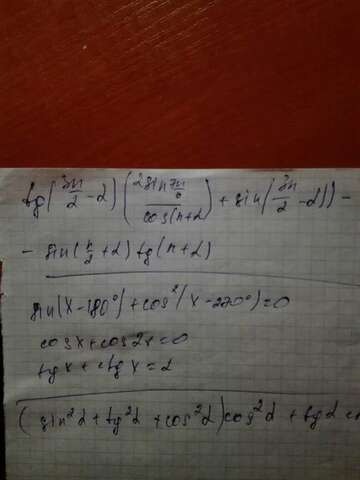 tg(3π/2 - α) (2sin 7π/6 / cos(π+α) + sin(3π/2 - α)) -
- sin(π/2 + α) tg(π+α)
sin(x-180°) + cos²(x-270°)=0
cosx+cos2x=0
tgx + ctgx = 2
(sin²α + tg²α + cos²α) cos²α + tgα